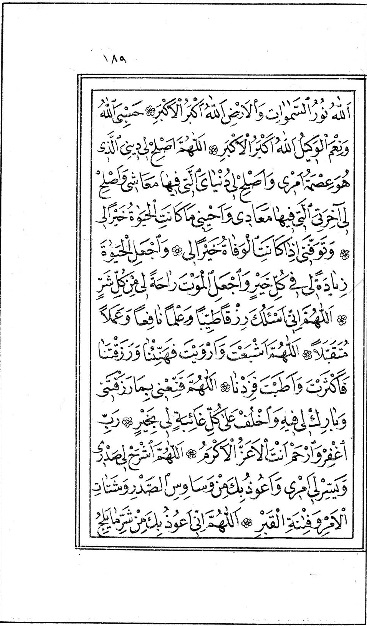 ١٨٩
اَللّٰهُ نُورُ السَّمٰوَاتِ وَالْاَرْضِ اَللّٰهُ اَكْبَرُ الْاَكْبَرِ ❁ حَسْبِيَ اللّٰهُ
وَنِعْمَ الْوَكِيلُ اَللّٰهُ اَكْبَرُ الْاَكْبَرِ ❁ اَللّٰهُمَّ اَصْلِحْ لِي دِينِيَ الَّذِي
هُوَ عِصْمَةُ اَمْرِي وَاَصْلِحْ لِي دُنْيَايَ الَّتِي فِيهَا مَعَاشِي وَاَصْلِحْ
لِي اٰخِرَتِيَ الَّتِي فِيهَا مَعَادِي وَاَحْيِنِي مَا كَانَتِ الْحَيٰوةُ خَيْرًا لِي
❁ وَتَوَفَّنِي اِذَا كَانَتِ الْوَفَاةُ خَيْرًا لِي ❁ وَاجْعَلِ الْحَيٰوةَ
زِيَادَةً لِي فِي كُلِّ خَيْرٍ وَاجْعَلِ الْمَوْتَ رَاحَةً لِي مِنْ كُلِّ شَرٍّ
❁ اَللّٰهُمَّ اِنِّي اَسْئَلُكَ رِزْقًا طَيِّبًا وَعِلْمًا نَافِعًا وَعَمَلًا
مُتَقَبَّلًا ❁ اَللّٰهُمَّ اَشْبَعْتَ وَاَرْوَيْتَ فَهَنِّئْنَا وَرَزَقْتَنَا
فَاَكْثَرْتَ وَاَطَبْتَ فَزِدْنَا ❁ اَللّٰهُمَّ قَنِّعْنِي بِمَا رَزَقْتَنِي
وَبَارِكْ لِي فِيهِ وَاخْلُفْ عَلٰى كُلِّ غَائِبَةٍ لِي بِخَيْرٍ ❁ رَبِّ
اغْفِرْ وَارْحَمْ اَنْتَ الْاَعَزُّ الْاَكْرَمُ ❁ اَللّٰهُمَّ اشْرَحْ لِي صَدْرِي
وَيَسِّرْ لِي اَمْرِي وَاَعُوذُ بِكَ مِنْ وَسَاوِسِ الصَّدْرِ وَشَتَاتِ
الْاَمْرِ وَفِتْنَةِ الْقَبْرِ ❁ اَللّٰهُمَّ اِنِّي اَعُوذُ بِكَ مِنْ شَرِّ مَا يَلِجُ